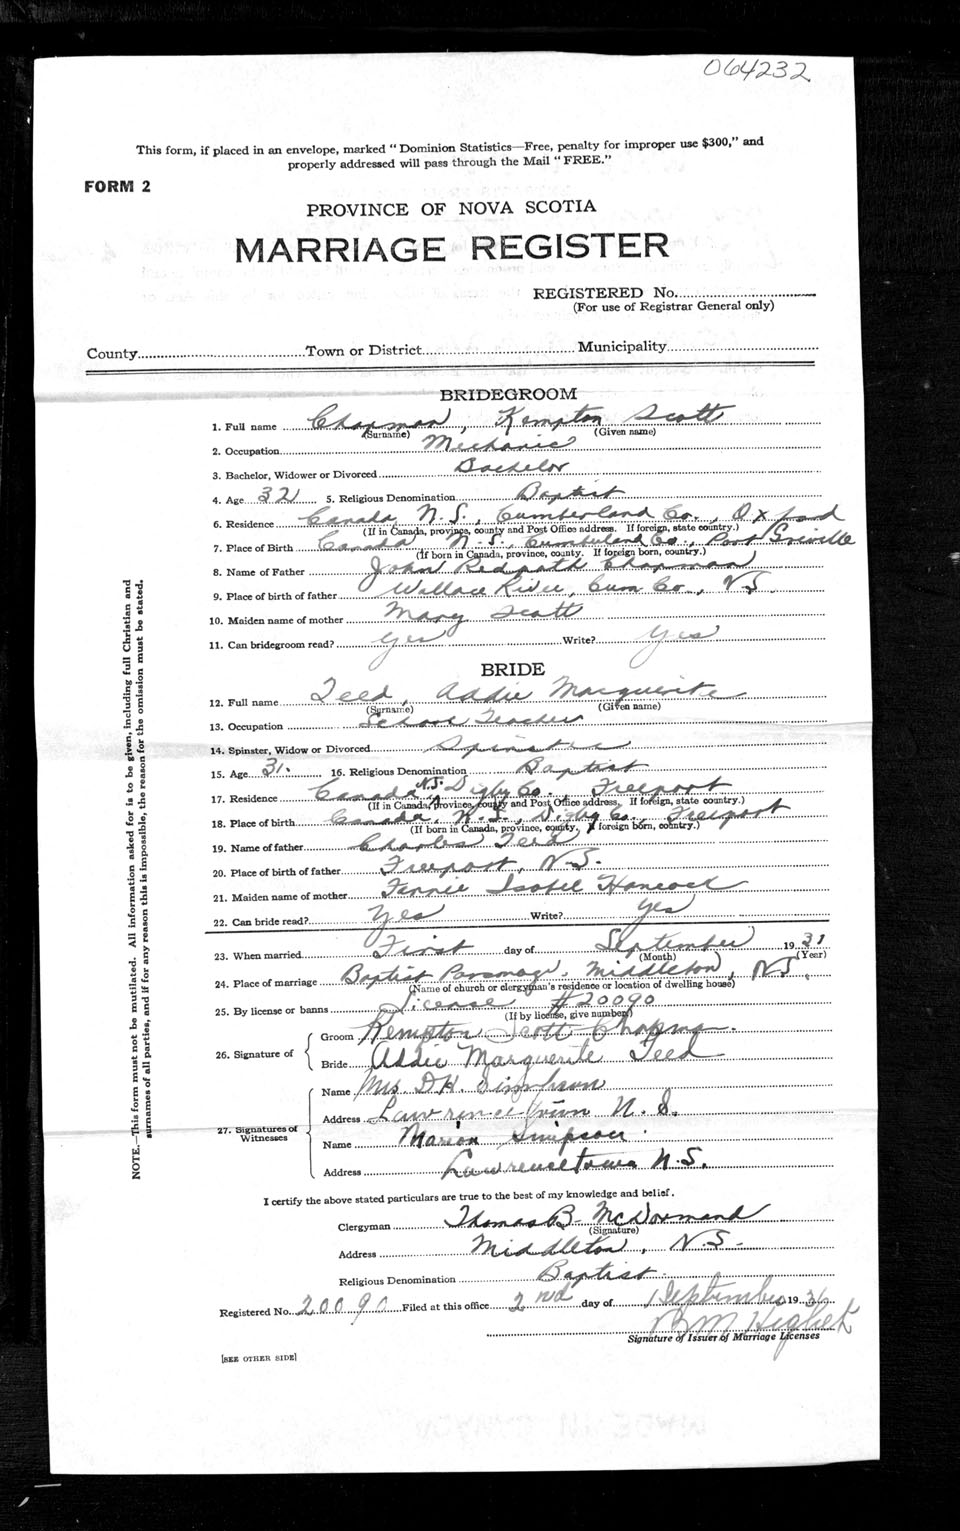 064232
This form, if placed in an envelope, marked "Dominion Statistics—Free, penalty for improper use $300," and
properly addressed will pass through the Mail "FREE."
FORM 2
PROVINCE OF NOVA SCOTIA
MARRIAGE REGISTER
REGISTERED No.
(For use of Registrar General only)
County Town or District Municipality
BRIDEGROOM
1. Full name Chapman, Kempton Scott
(Surname) (Given name)
2. Occupation Mechanic
3. Bachelor, Widower or Divorced Bachelor
4. Age 32 5. Religious Denomination Baptist
6. Residence Canada N.S., Cumberland Co., Oxford
(If in Canada, province, county and Post Office address. If foreign, state country.)
7. Place of Birth Canada N.S., Cumberland Co., Port Greville
(If born in Canada, province, county. If foreign born, country.)
8. Name of Father John Redpath Chapman
9. Place of birth of father Wallace River, Cum Co., N.S.
10. Maiden name of mother Mary Scott
11. Can bridegroom read? Yes Write? Yes
BRIDE
12. Full name Teed, Addie Marguerite
(Surname) (Given name)
13. Occupation School Teacher
14. Spinster, Widow or Divorced Spinster
15. Age 31. 16. Religious Denomination Baptist
17. Residence Canada N.S. Digby Co., Freeport
(If in Canada, province, county and Post Office address. If foreign, state country.)
18. Place of birth Canada, N.S., Digby Co., Freeport
(If born in Canada, province, county. If foreign born, country.)
19. Name of father Charles Teed
20. Place of birth of father Freeport, N.S.
21. Maiden name of mother Fannie Isabel Hancock
22. Can bride read? Yes Write? Yes
23. When married First day of September 19
(Month) (Year)
24. Place of marriage Baptist Parsonage, Middleton, N.S.
(Name of church or clergyman's residence or location of dwelling house)
25. By license or banns License #20090
(If by license, give number)
26. Signature of
Groom Kempton Scott Chapman.
Bride Addie Marguerite Teed
27. Signatures of Witnesses
Name Mrs. D.H. Simpson
Address Lawrencetown N.S.
Name Marion Simpson.
Address Lawrencetown N.S.
I certify the above stated particulars are true to the best of my knowledge and belief.
Clergyman Thomas B. McDormand
(Signature)
Address Middleton, N.S.
Religious Denomination Baptist.
Registered No. 20090 Filed at this office 2nd day of September 1936
Signature of Issuer of Marriage Licenses
[SEE OTHER SIDE]
NOTE.—This form must not be mutilated. All information asked for is to be given, including full Christian and
surnames of all parties, and if for any reason this is impossible, the reason for the omission must be stated.